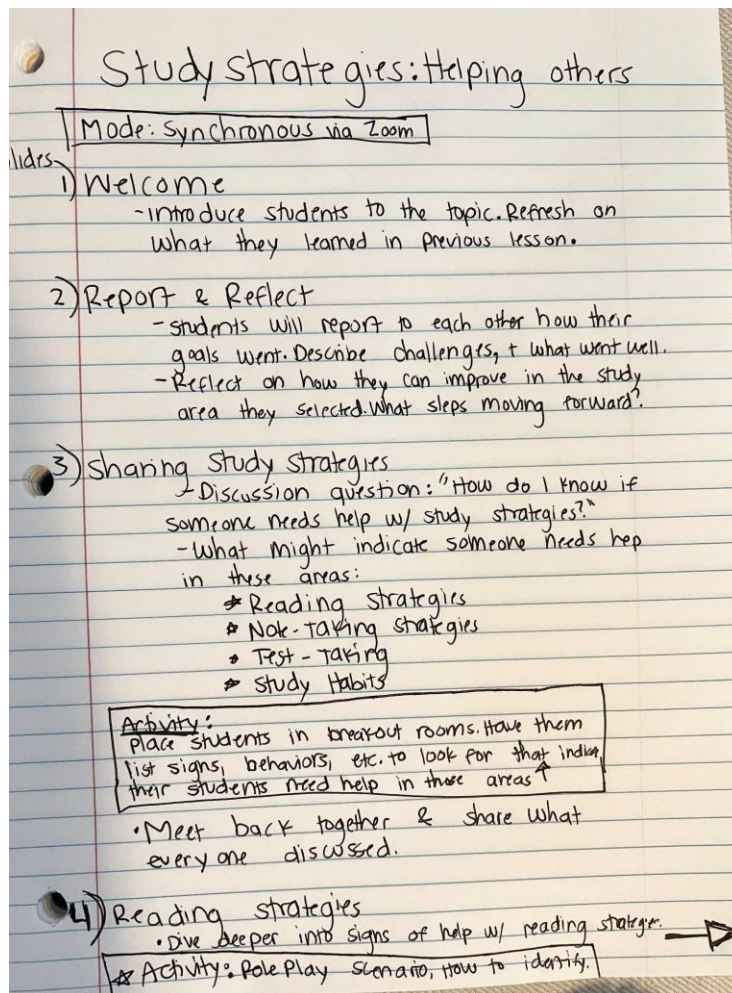 Study Strategies: Helping others
Mode: Synchronous via Zoom
lides
1) Welcome
-introduce students to the topic. Refresh on
what they learned in previous lesson.
2) Report & Reflect
- students will report to each other how their
goals went. Describe challenges, + what went well.
- Reflect on how they can improve in the study
area they selected. What steps moving forward?
3) Sharing Study Strategies
- Discussion question: "How do I know if
someone needs help w/ study strategies?"
- What might indicate someone needs hep
in these areas:
☆ Reading strategies
☆ Note-Taking strategies
• Test-Taking
☆ Study Habits
Activity:
place students in breakout rooms. Have them
list signs, behaviors, etc. to look for that indicate
their students need help in those areas ↑
• Meet back together & share what
everyone discussed.
4) Reading strategies
• Dive deeper into signs of help w/ reading strategies. →
☆ Activity: Role Play scenario, How to identify.